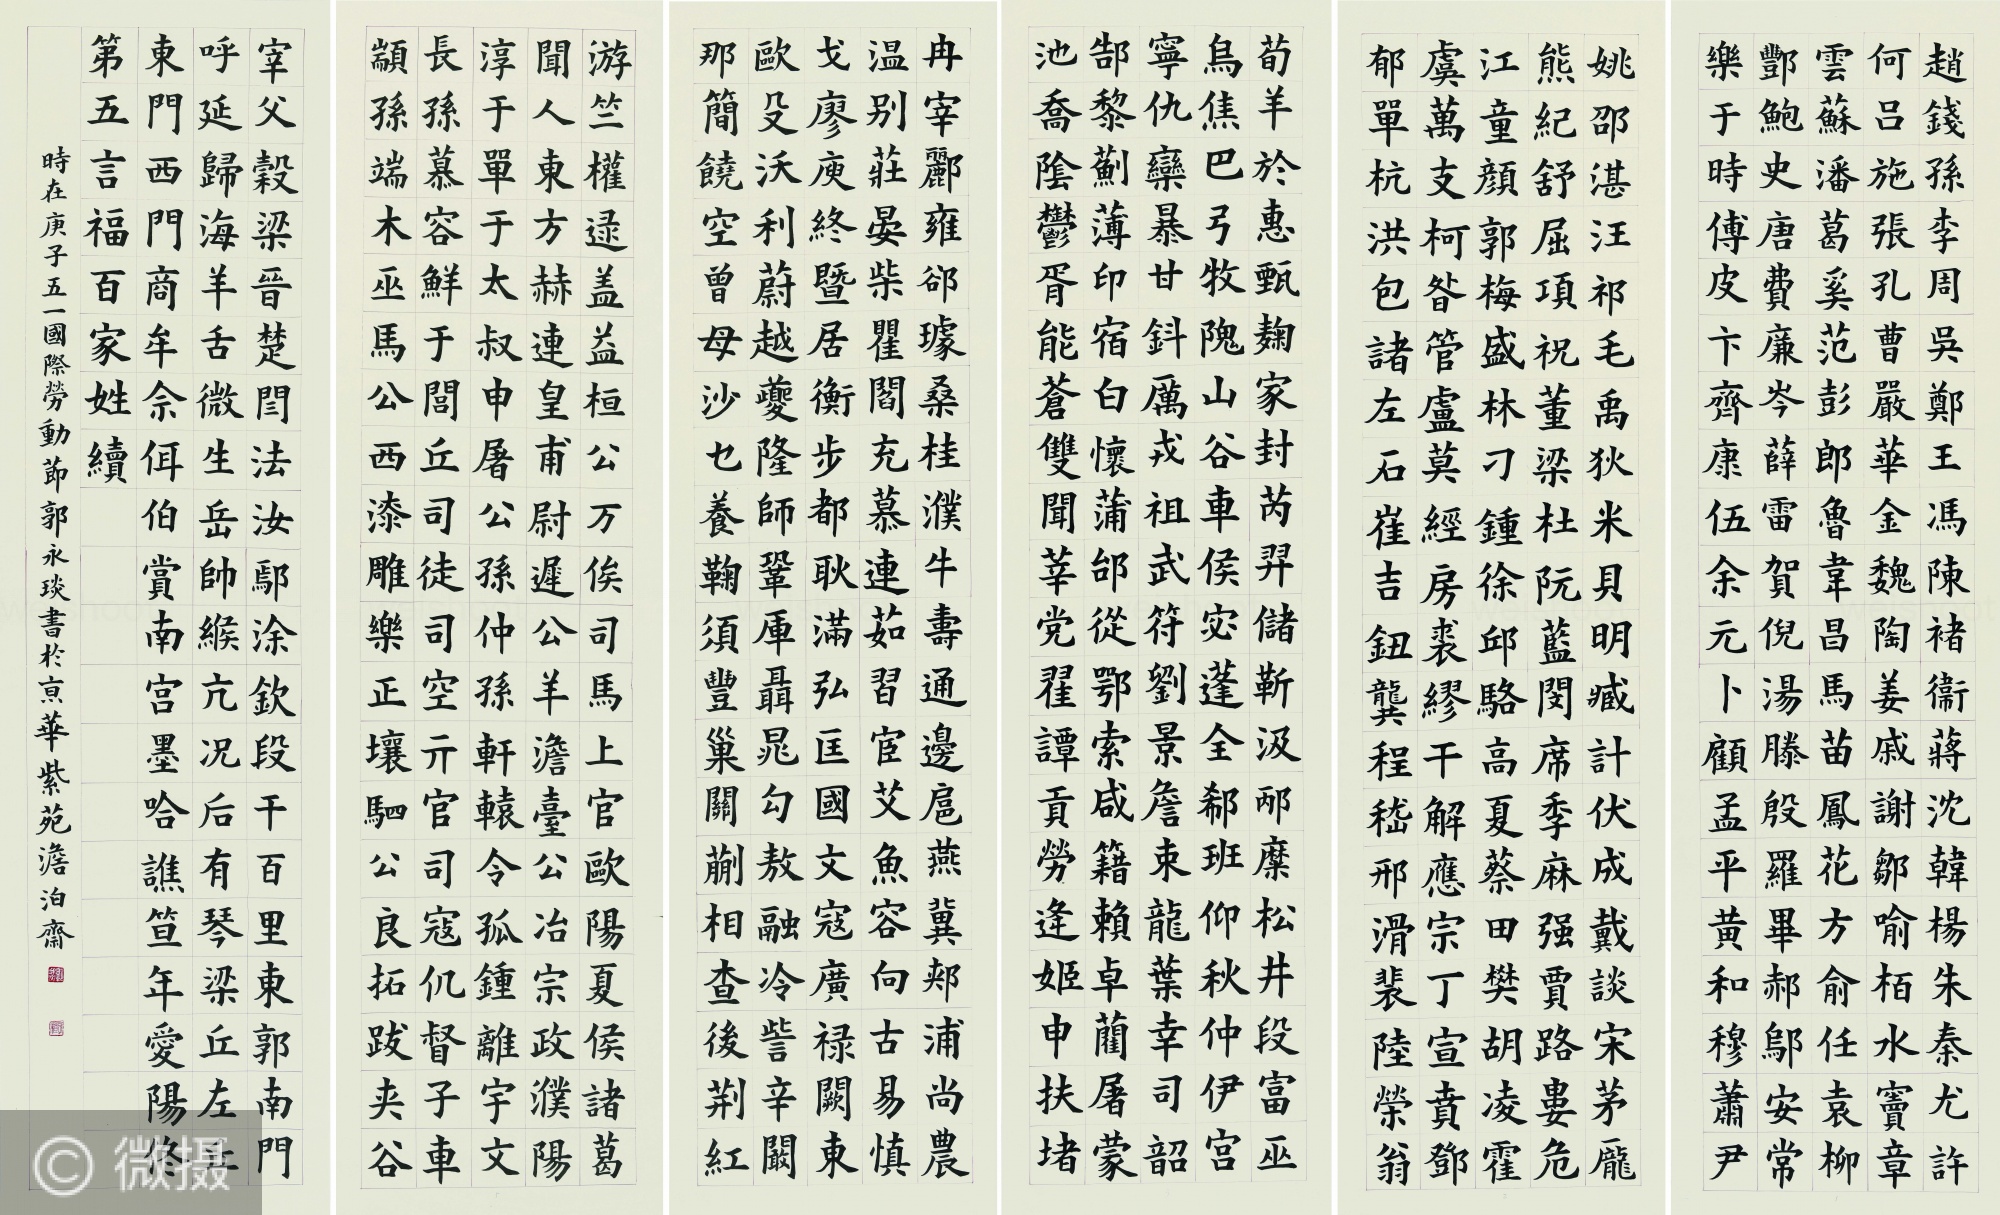 趙錢孫李周吳鄭王馮陳褚衞蔣沈韓楊朱秦尤許
何呂施張孔曹嚴華金魏陶姜戚謝鄒喻栢水竇章
雲蘇潘葛奚范彭郎魯韋昌馬苗鳳花方俞任袁柳
酆鮑史唐費廉岑薛雷賀倪湯滕殷羅畢郝鄔安常
樂于時傅皮卞齊康伍余元卜顧孟平黃和穆蕭尹
姚邵湛汪祁毛禹狄米貝明臧計伏成戴談宋茅龐
熊紀舒屈項祝董梁杜阮藍閔席季麻强賈路婁危
江童顔郭梅盛林刁鍾徐邱駱高夏蔡田樊胡凌霍
虞萬支柯昝管盧莫經房裘繆干解應宗丁宣賁鄧
郁單杭洪包諸左石崔吉鈕龔程嵇邢滑裴陸榮翁
荀羊於惠甄麴家封芮羿儲靳汲邴糜松井段富巫
烏焦巴弓牧隗山谷車侯宓蓬全郗班仰秋仲伊宫
寧仇欒暴甘鈄厲戎祖武符劉景詹束龍葉幸司韶
郜黎薊薄印宿白懷蒲邰從鄂索咸籍賴卓藺屠蒙
池喬陰鬱胥能蒼雙聞莘党翟譚貢勞逄姬申扶堵
冉宰酈雍郤璩桑桂濮牛壽通邊扈燕冀郟浦尚農
温别莊晏柴瞿閻充慕連茹習宦艾魚容向古易慎
戈廖庾終暨居衡步都耿滿弘匡國文寇廣禄闕東
歐殳沃利蔚越夔隆師鞏厙聶晁勾敖融冷訾辛闞
那簡饒空曾母沙乜養鞠須豐巢關蒯相查後荆紅
游竺權逯盖益桓公万俟司馬上官歐陽夏侯諸葛
聞人東方赫連皇甫尉遲公羊澹臺公冶宗政濮陽
淳于單于太叔申屠公孫仲孫軒轅令狐鍾離宇文
長孫慕容鮮于閭丘司徒司空亓官司寇仉督子車
顓孫端木巫馬公西漆雕樂正壤駟公良拓跋夹谷
宰父穀梁晉楚閆法汝鄢涂欽段干百里東郭南門
呼延歸海羊舌微生岳帥緱亢况后有琴梁丘左丘
東門西門商牟佘佴伯賞南宫墨哈譙笪年愛陽佟
第五言福百家姓續
時在庚子五一國際勞動節郭永琰書於京華紫苑澹泊齋
© 微摄